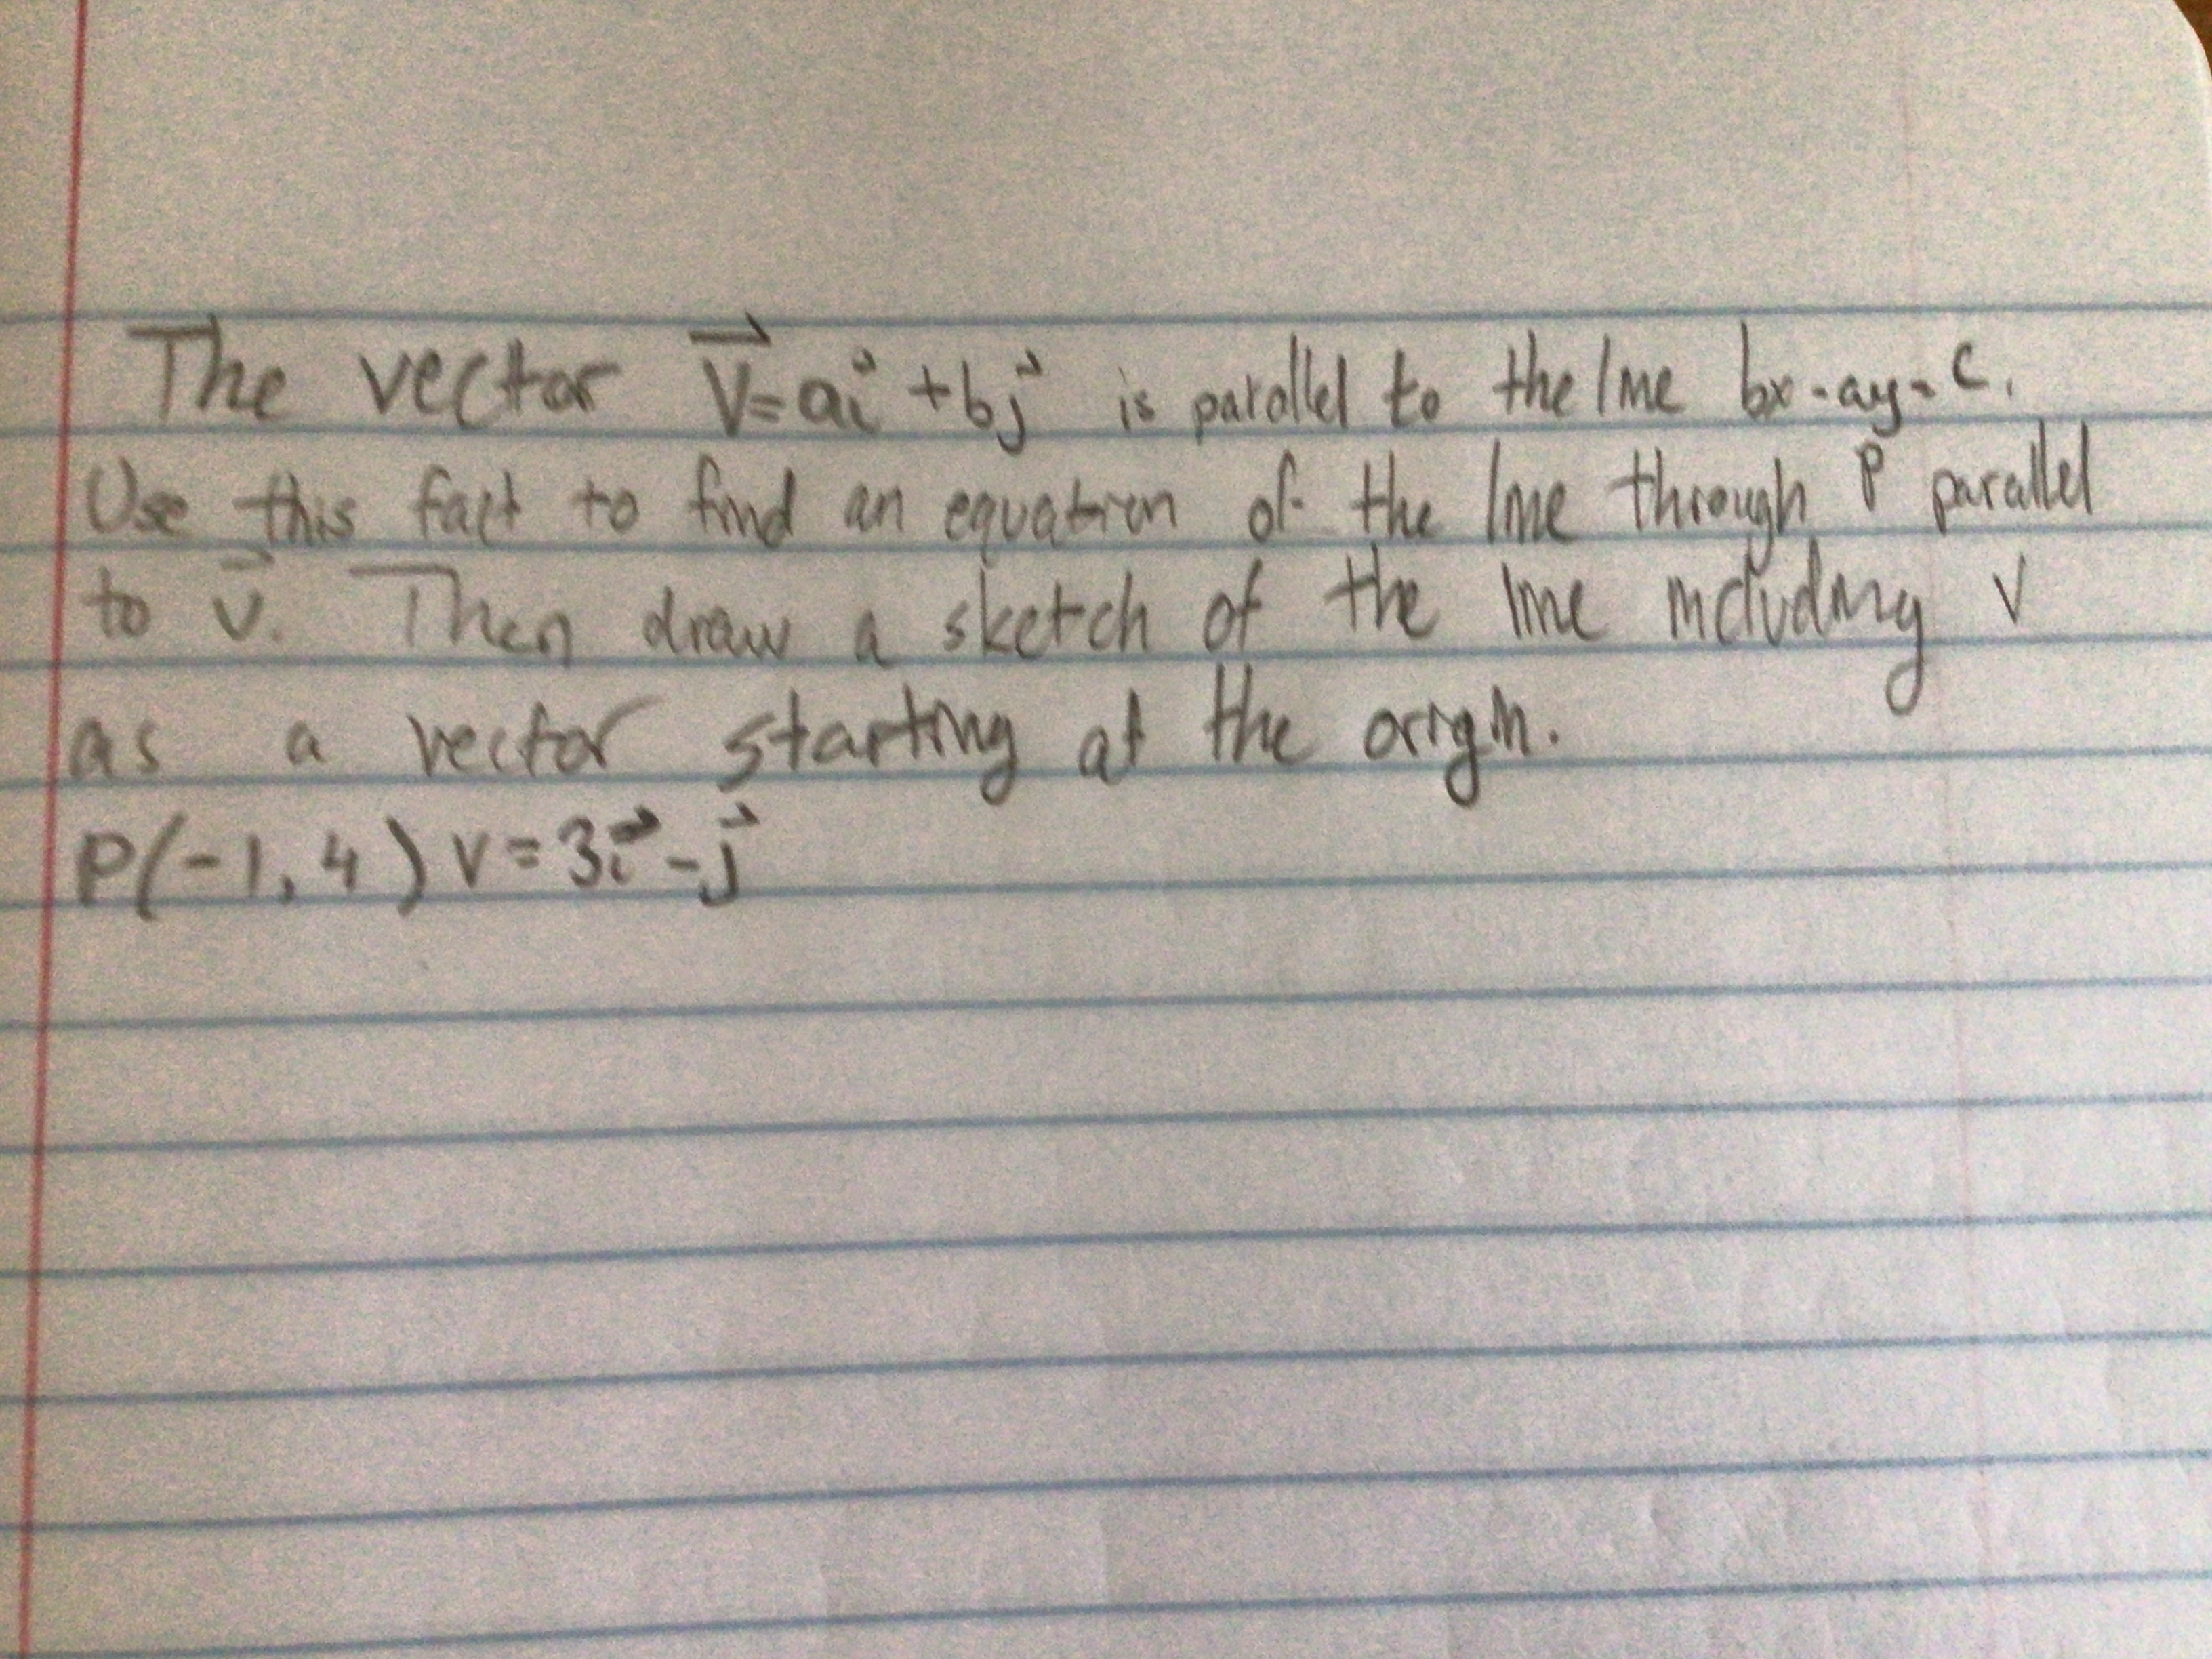 The vector v⃗=ai⃗ +bj⃗ is parallel to the line bx-ay=c.
Use this fact to find an equation of the line through P parallel
to v⃗. Then draw a sketch of the line including v
as a vector starting at the origin.
P(-1,4) v=3i⃗-j⃗